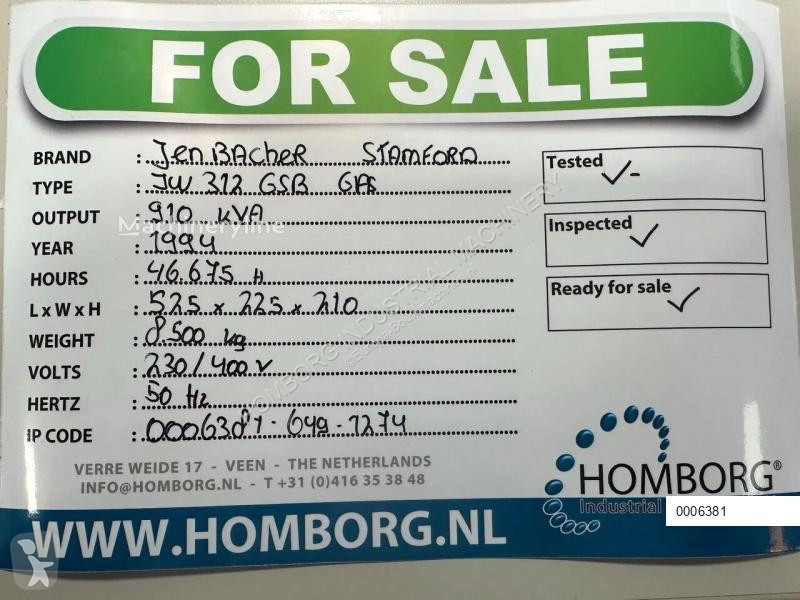 FOR SALE
BRAND : JenBAcheR STAMFORD
TYPE : JW 312 GSB GAS
OUTPUT : 910 KVA
YEAR : 1994
HOURS : 46.675 H
L x W x H : 525 x 225 x 210
WEIGHT : 8.500 kg
VOLTS : 230/400 V
HERTZ : 50 Hz
IP CODE : 0006381-649-1274
Tested ✓-
Inspected ✓
Ready for sale ✓
Machineryline
HOMBORG INDUSTRIAL MACHINERY
VERRE WEIDE 17 - VEEN - THE NETHERLANDS
INFO@HOMBORG.NL - T +31 (0)416 35 38 48
HOMBORG®
Industrial
0006381
WWW.HOMBORG.NL